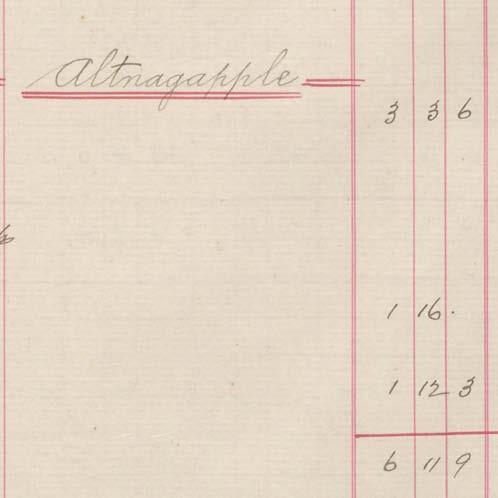 Altnagapple
3 3 6
1 16 .
1 12 3
6 11 9